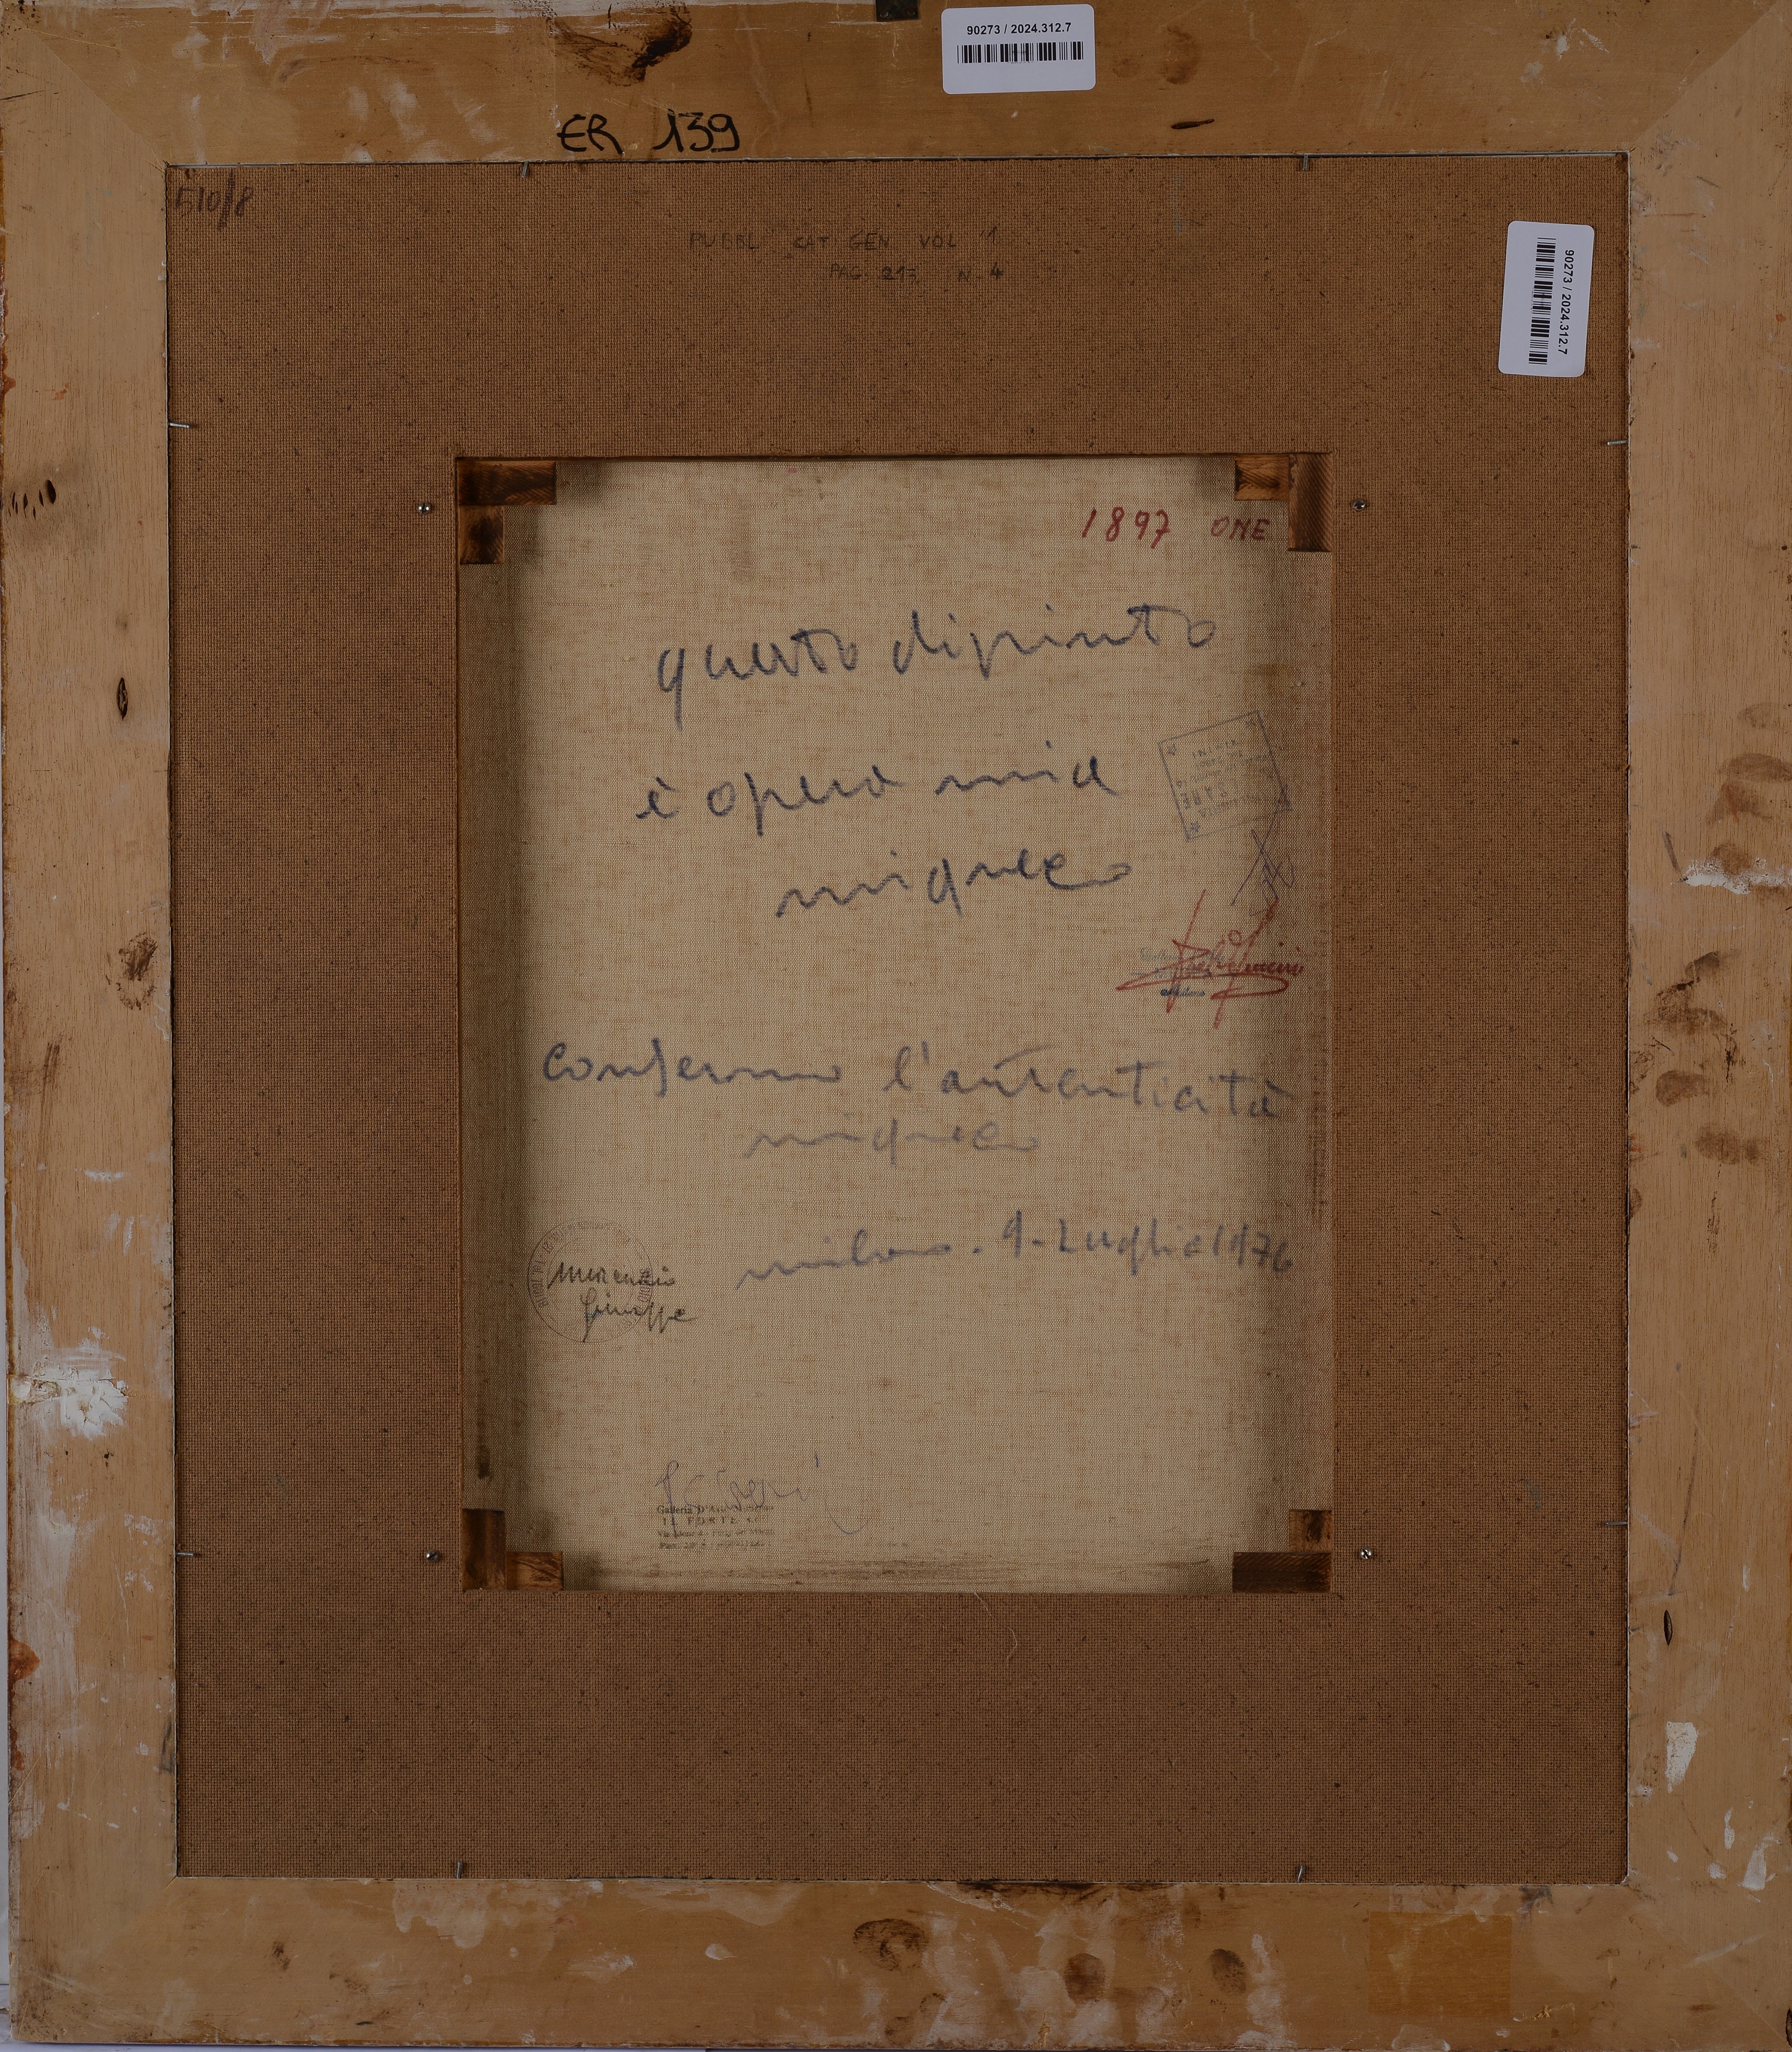 90273 / 2024.312.7
ER 139
510/8
PUBBL. CAT GEN. VOL 1
PAG. 217 N. 4
90273 / 2024.312.7
1897 ONE
questo dipinto
è opera mia
migneco
Milano
confermo l'autenticità
migneco
milano. 9. Luglio 1976
Giuseppe
Galleria D'Arte
IL FORTE